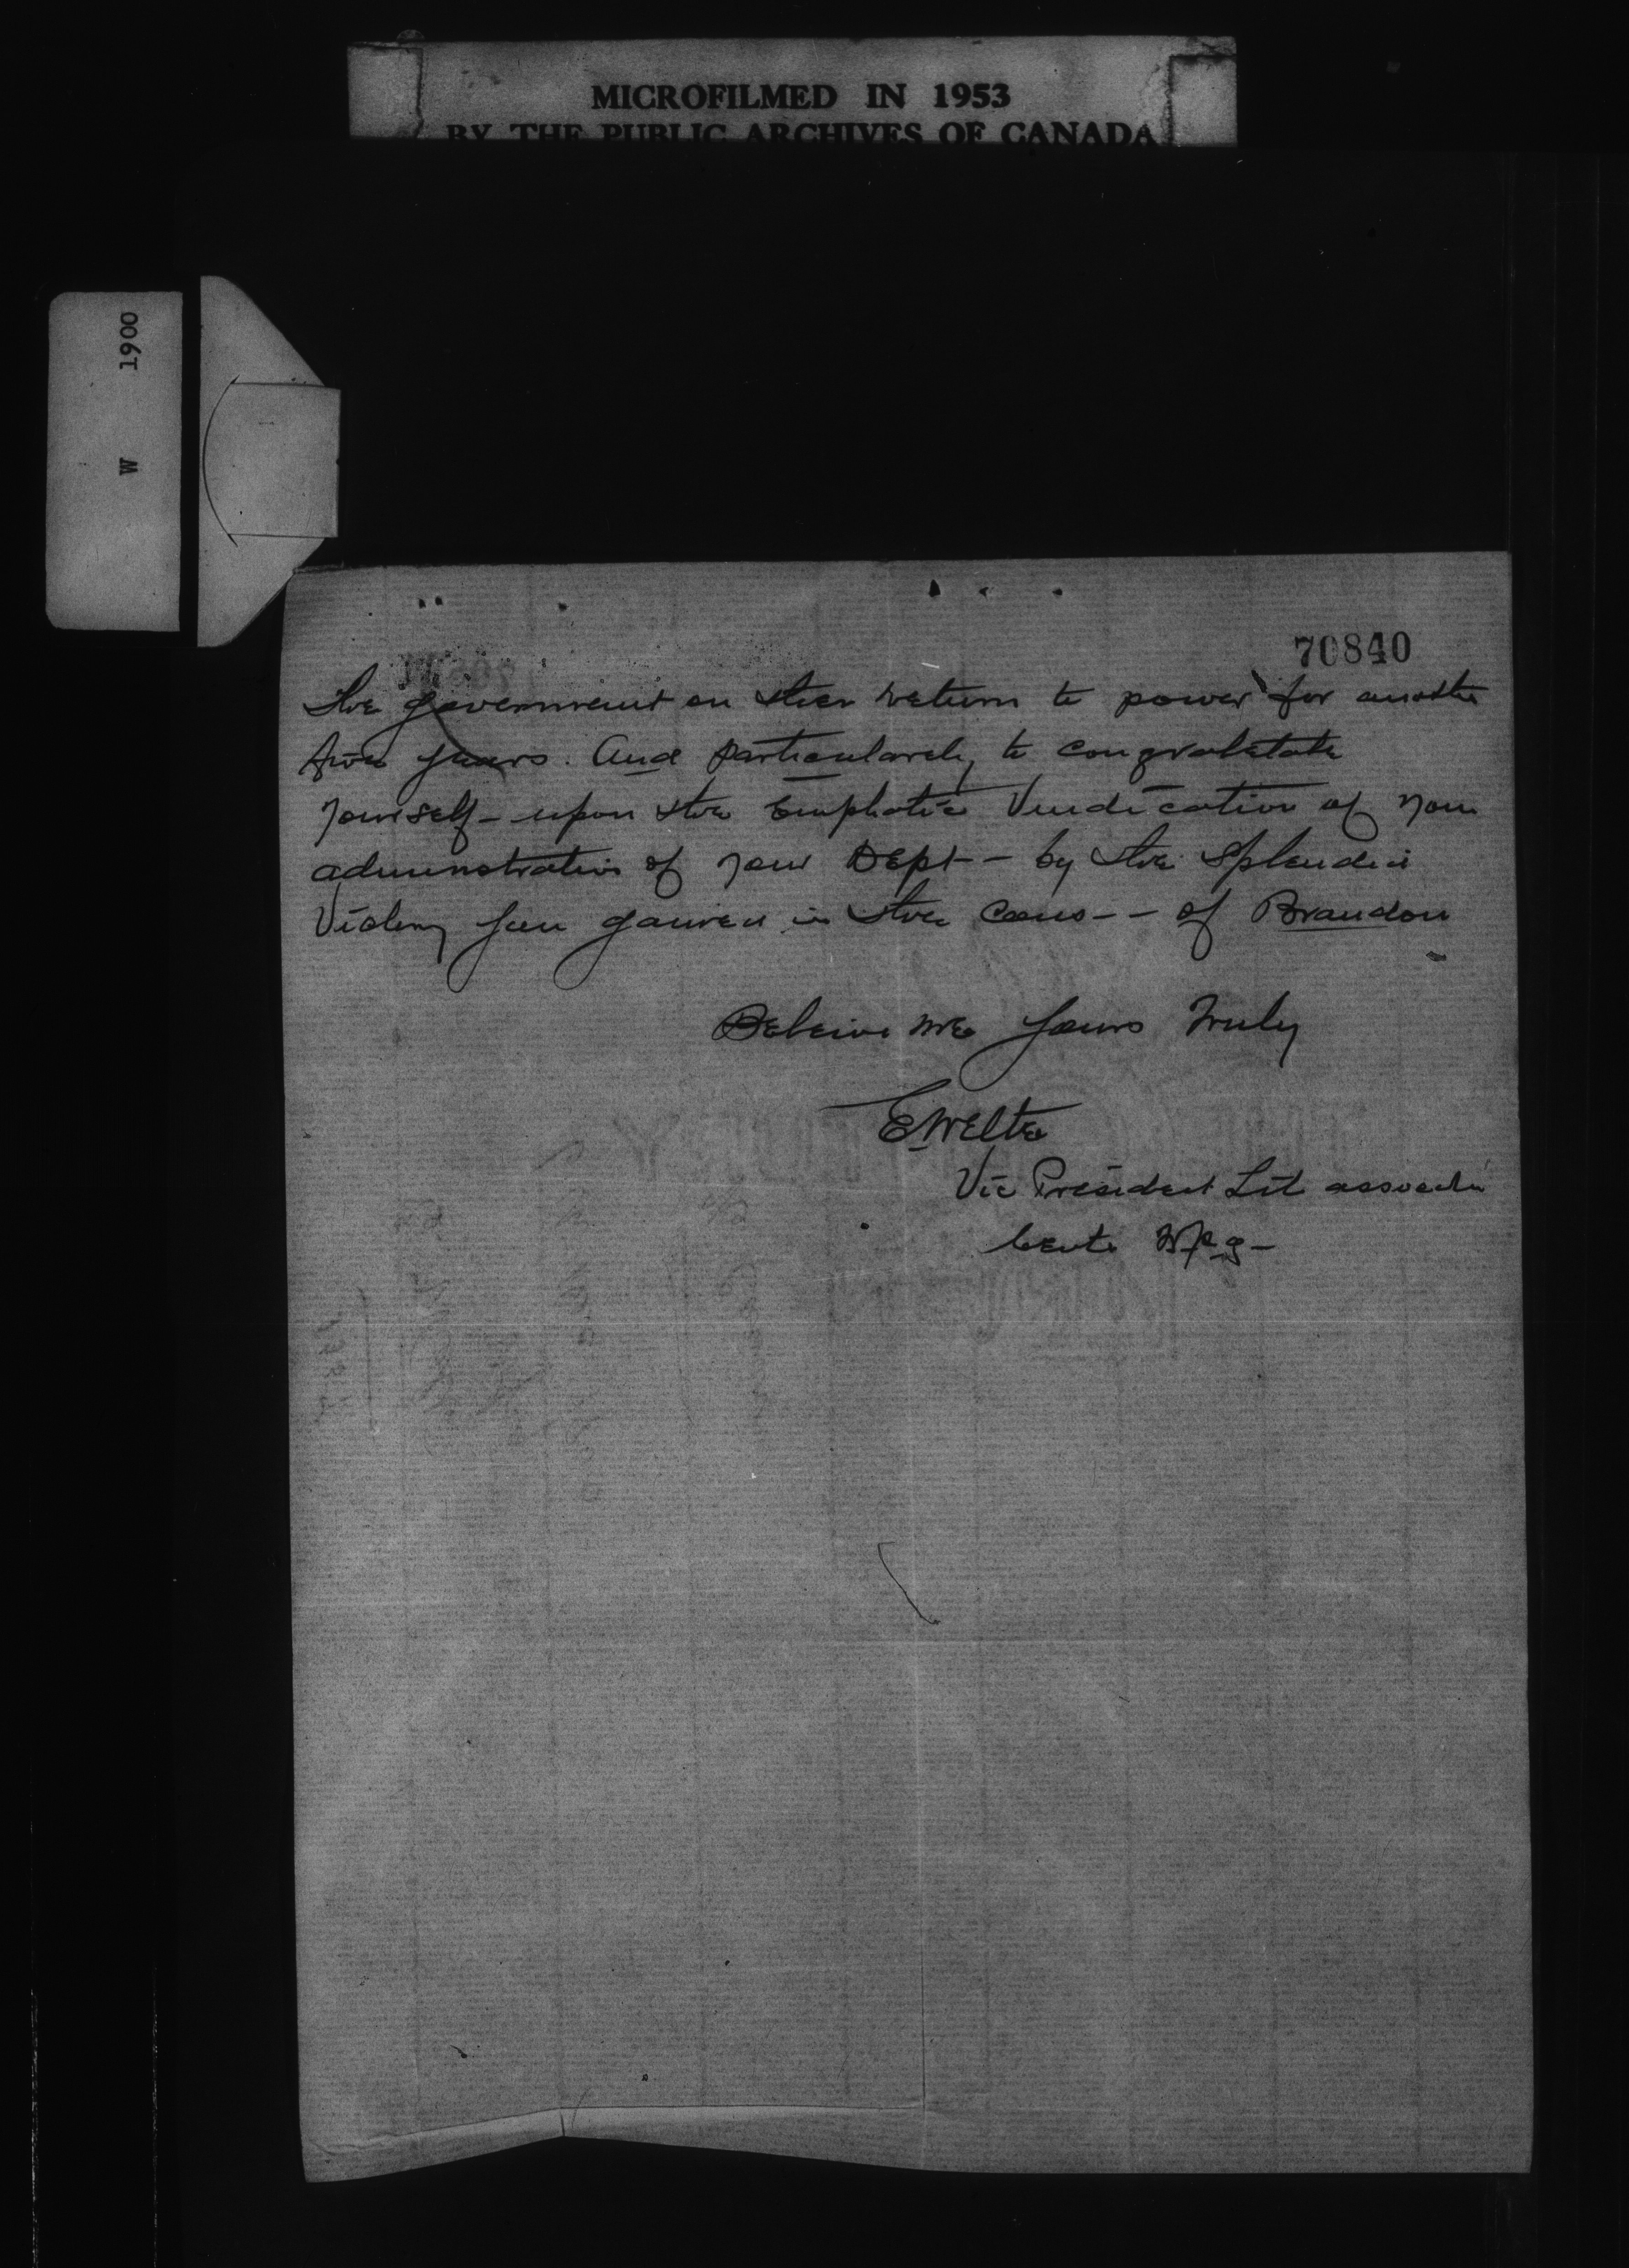 MICROFILMED IN 1953
BY THE PUBLIC ARCHIVES OF CANADA
W 1900
70840
the government on their return to power for another
five years. And particularely to congratulate
yourself - upon the Emphatic Vindication of your
administration of your Dept - by the Splendid
Victory you gained in the Cons - - of Brandon
Beleive me yours Truly
E Welte
Vic President Lib associatn
Cente Wpg -